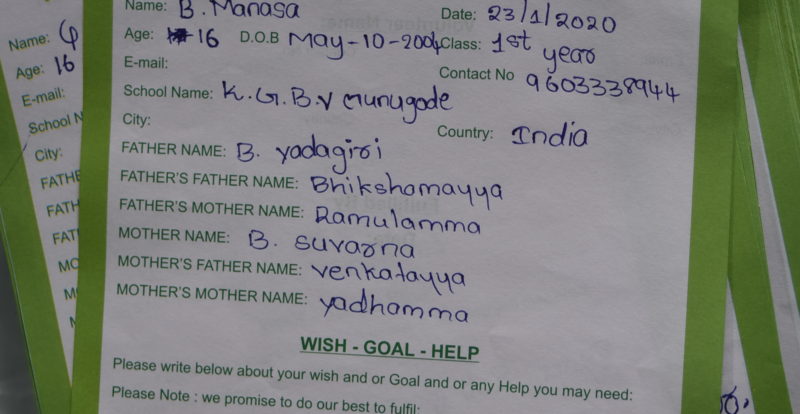 Name: B. Manasa Date: 23/1/2020
Age: 16 D.O.B May-10-2004 Class: 1st year
E-mail: Contact No 9603338944
School Name: K.G.B.V Munugode
City: Country: India
FATHER NAME: B. yadagiri
FATHER'S FATHER NAME: Bhikshamayya
FATHER'S MOTHER NAME: Ramulamma
MOTHER NAME: B. suvarna
MOTHER'S FATHER NAME: venkatayya
MOTHER'S MOTHER NAME: yadhamma
WISH - GOAL - HELP
Please write below about your wish and or Goal and or any Help you may need:
Please Note : we promise to do our best to fulfil:
Name:
Age: 16
E-mail:
School N
City:
FATHE
FATH
FAT
MO
M